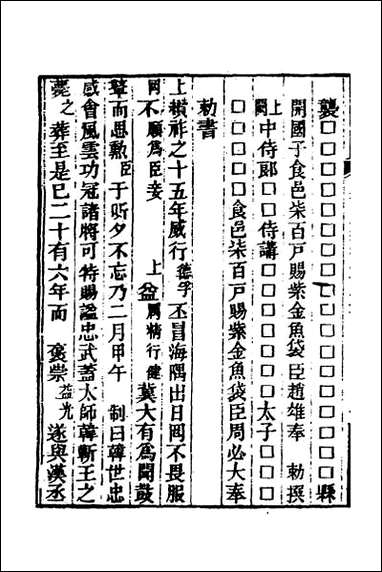 襲□□□□□□□□□□□□□□□□□□縣
開國子食邑柒百戶賜紫金魚袋臣趙雄奉　勅撰
上闕中侍郎□□侍講□□□□□太子□□□□
□□□□□食邑柒百戶賜紫金魚袋臣周必大奉
勅書
上纘祚之十五年威行德孚丕冒海隅出日罔不畏服
罔不願爲臣妾　上益厲精行健冀大有爲聞鼓
鼙而思勲臣于昕夕不忘乃二月甲午　制曰韓世忠
感會風雲功冠諸將可特賜諡忠武蓋太師韓蘄王之
薨之葬至是已二十有六年而　襃崇益光　遂與漢丞